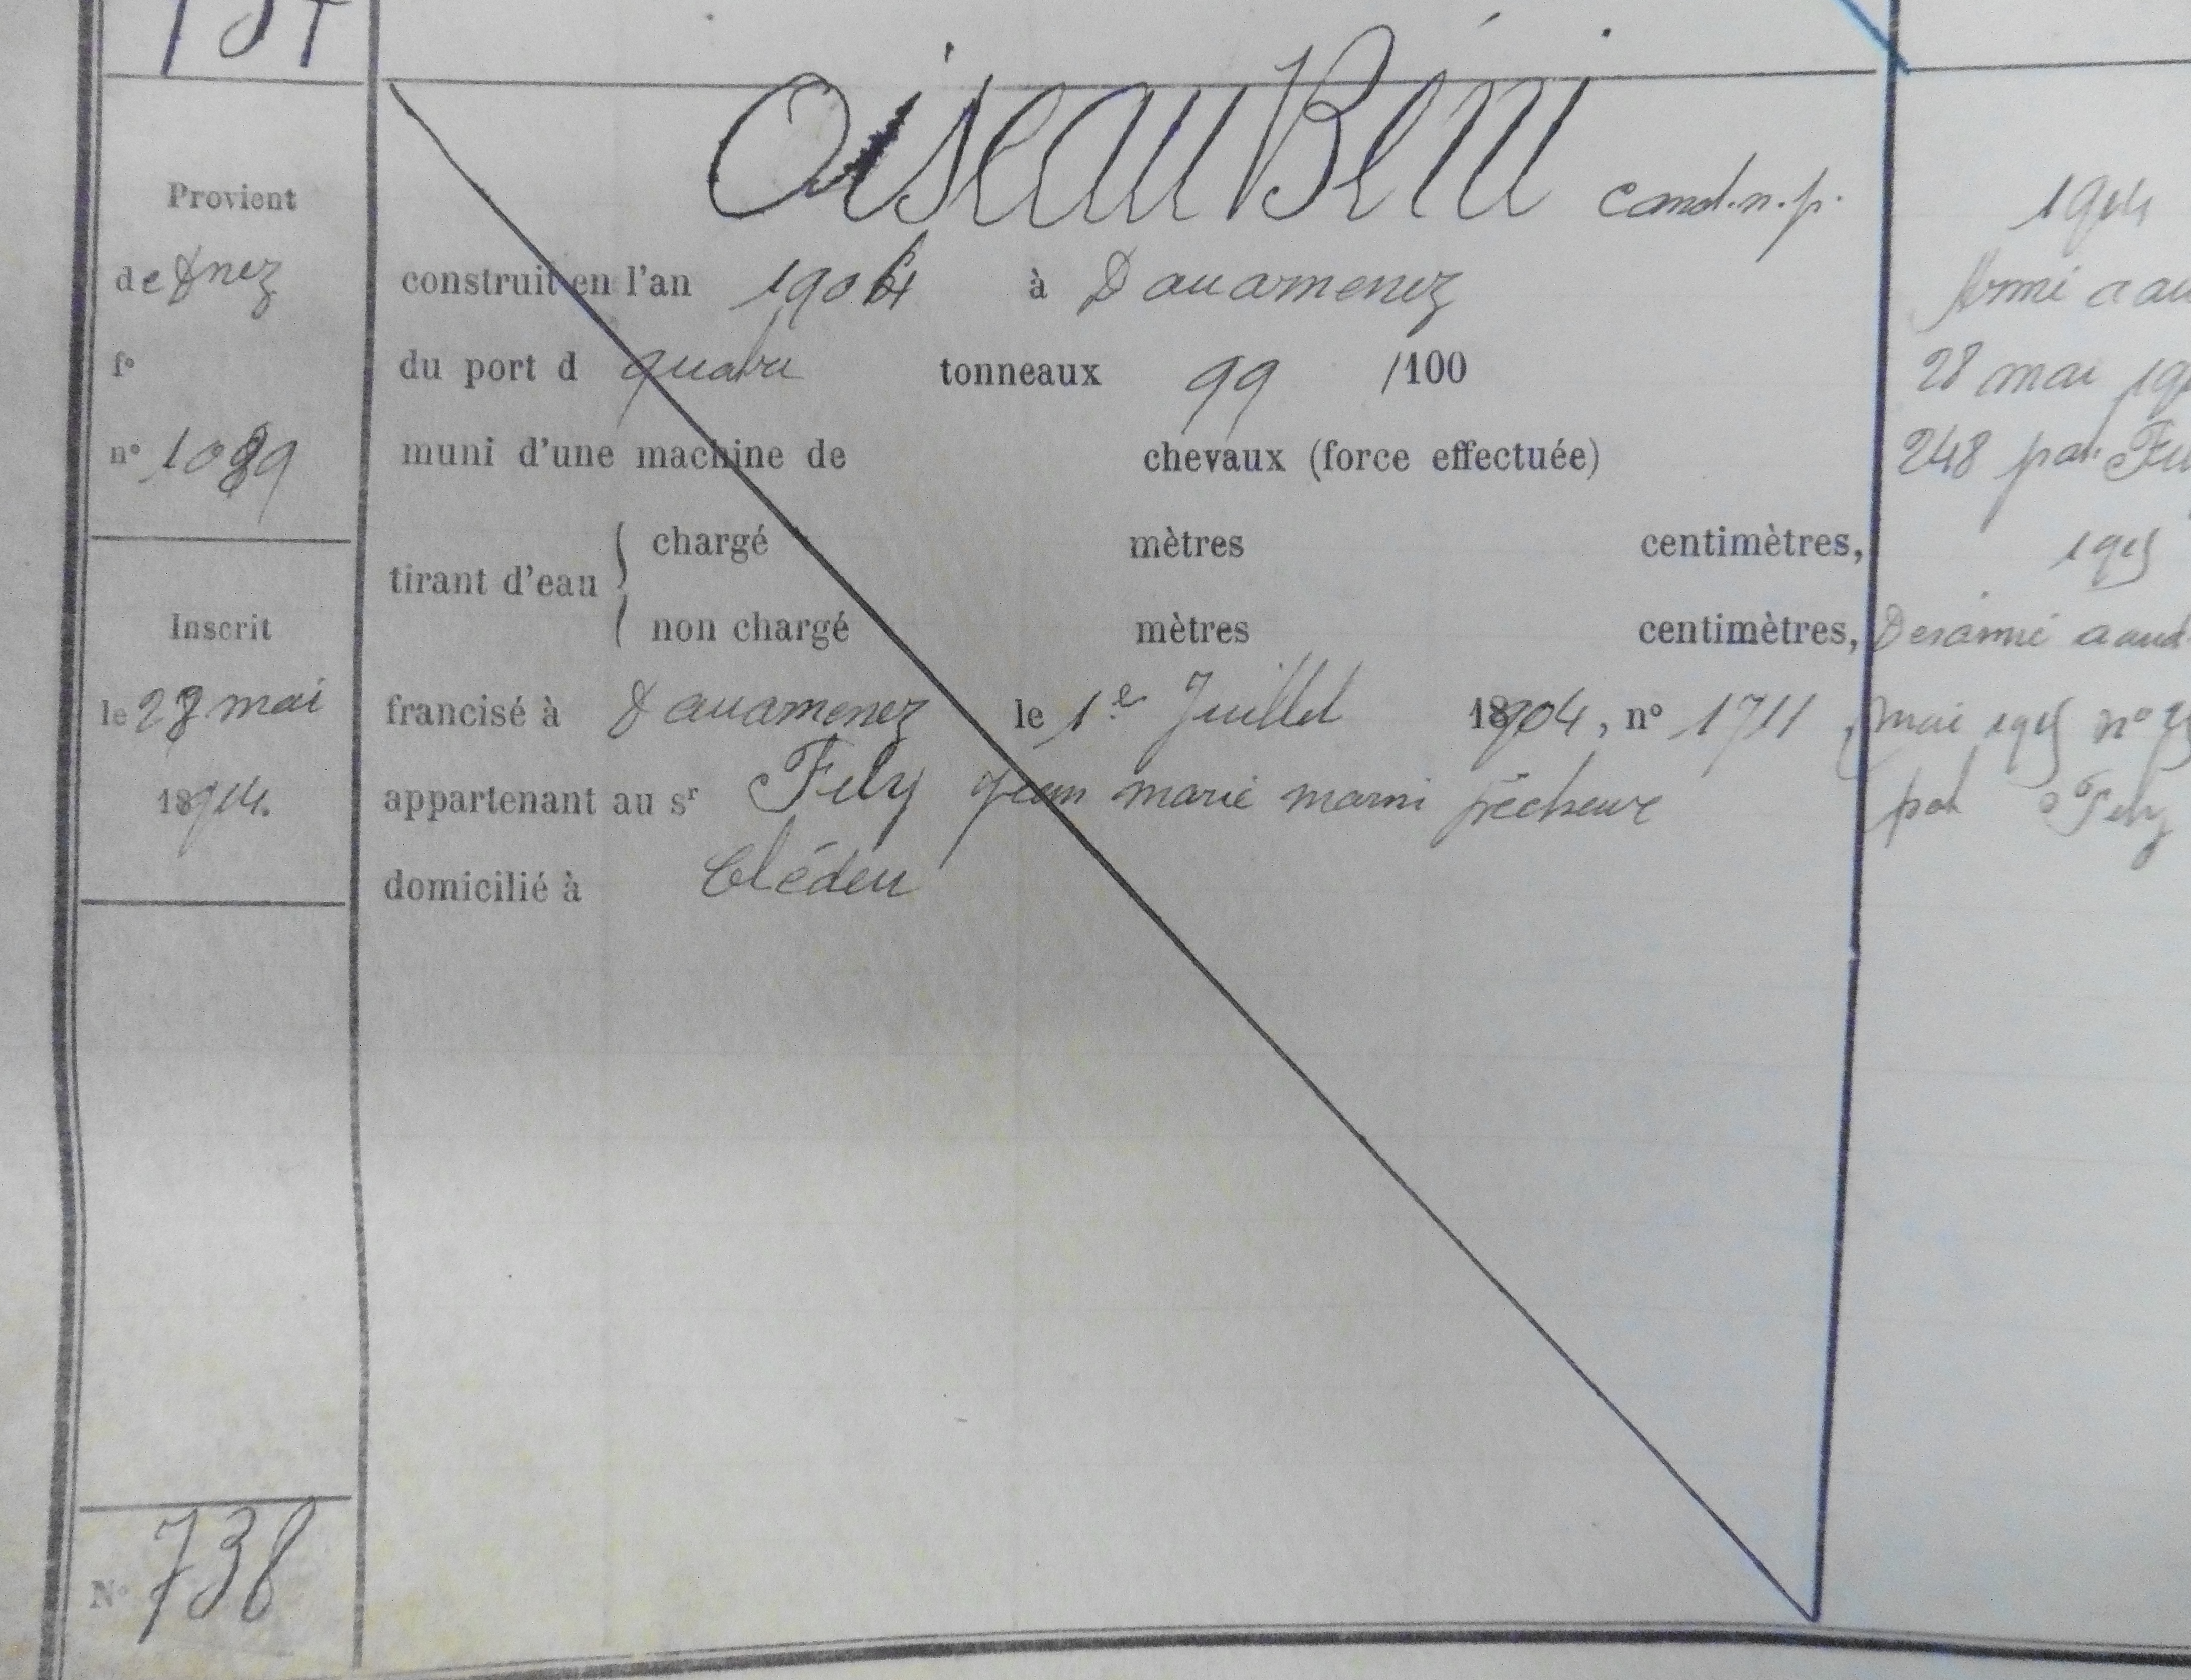 Oiseau Béni cand.n.p.
Provient
de Dnez
f°
n° 1089
Inscrit
le 28 mai
1904.
N° 738
construit en l'an 1904 à Douarnenez
du port d quatre tonneaux 99 /100
muni d'une machine de chevaux (force effectuée)
tirant d'eau { chargé mètres centimètres,
non chargé mètres centimètres,
francisé à Douarnenez le 1er Juillet 1904, n° 1711
appartenant au sr Fily Jean marie marin pêcheur
domicilié à Cléden
1904
Armé a au
28 mai 190
248 par
1905
Desarmé a aud
mai 1905 n°
par Fily